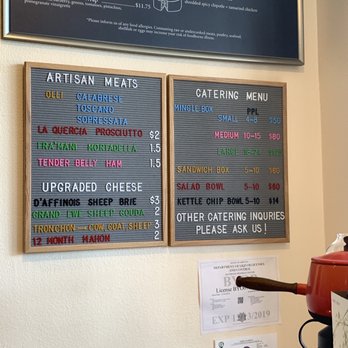 pomegranate vinegrette
$11.75
shredded spicy chipotle + tamarind chicken
Please inform us of any food allergies. Consuming raw or undercooked meats, poultry, seafood,
shellfish or eggs may increase your risk of foodborne illness.
ARTISAN MEATS
OLLI CALABRESE
TOSCANO
SOPRESSATA
LA QUERCIA PROSCIUTTO $2
FRA'MANI MORTADELLA 1.5
TENDER BELLY HAM 1.5
UPGRADED CHEESE
D'AFFINOIS SHEEP BRIE $3
GRAND EWE SHEEP GOUDA 2
TRONCHON - COW, GOAT, SHEEP 3
12 MONTH MAHON 2
CATERING MENU
MINGLE BOX PPL
SMALL 4-8 $50
MEDIUM 10-15 $80
LARGE
SANDWICH BOX 5-10 $80
SALAD BOWL 5-10 $60
KETTLE CHIP BOWL 5-10 $14
OTHER CATERING INQURIES
PLEASE ASK US!
License
EXP 1/3/2019